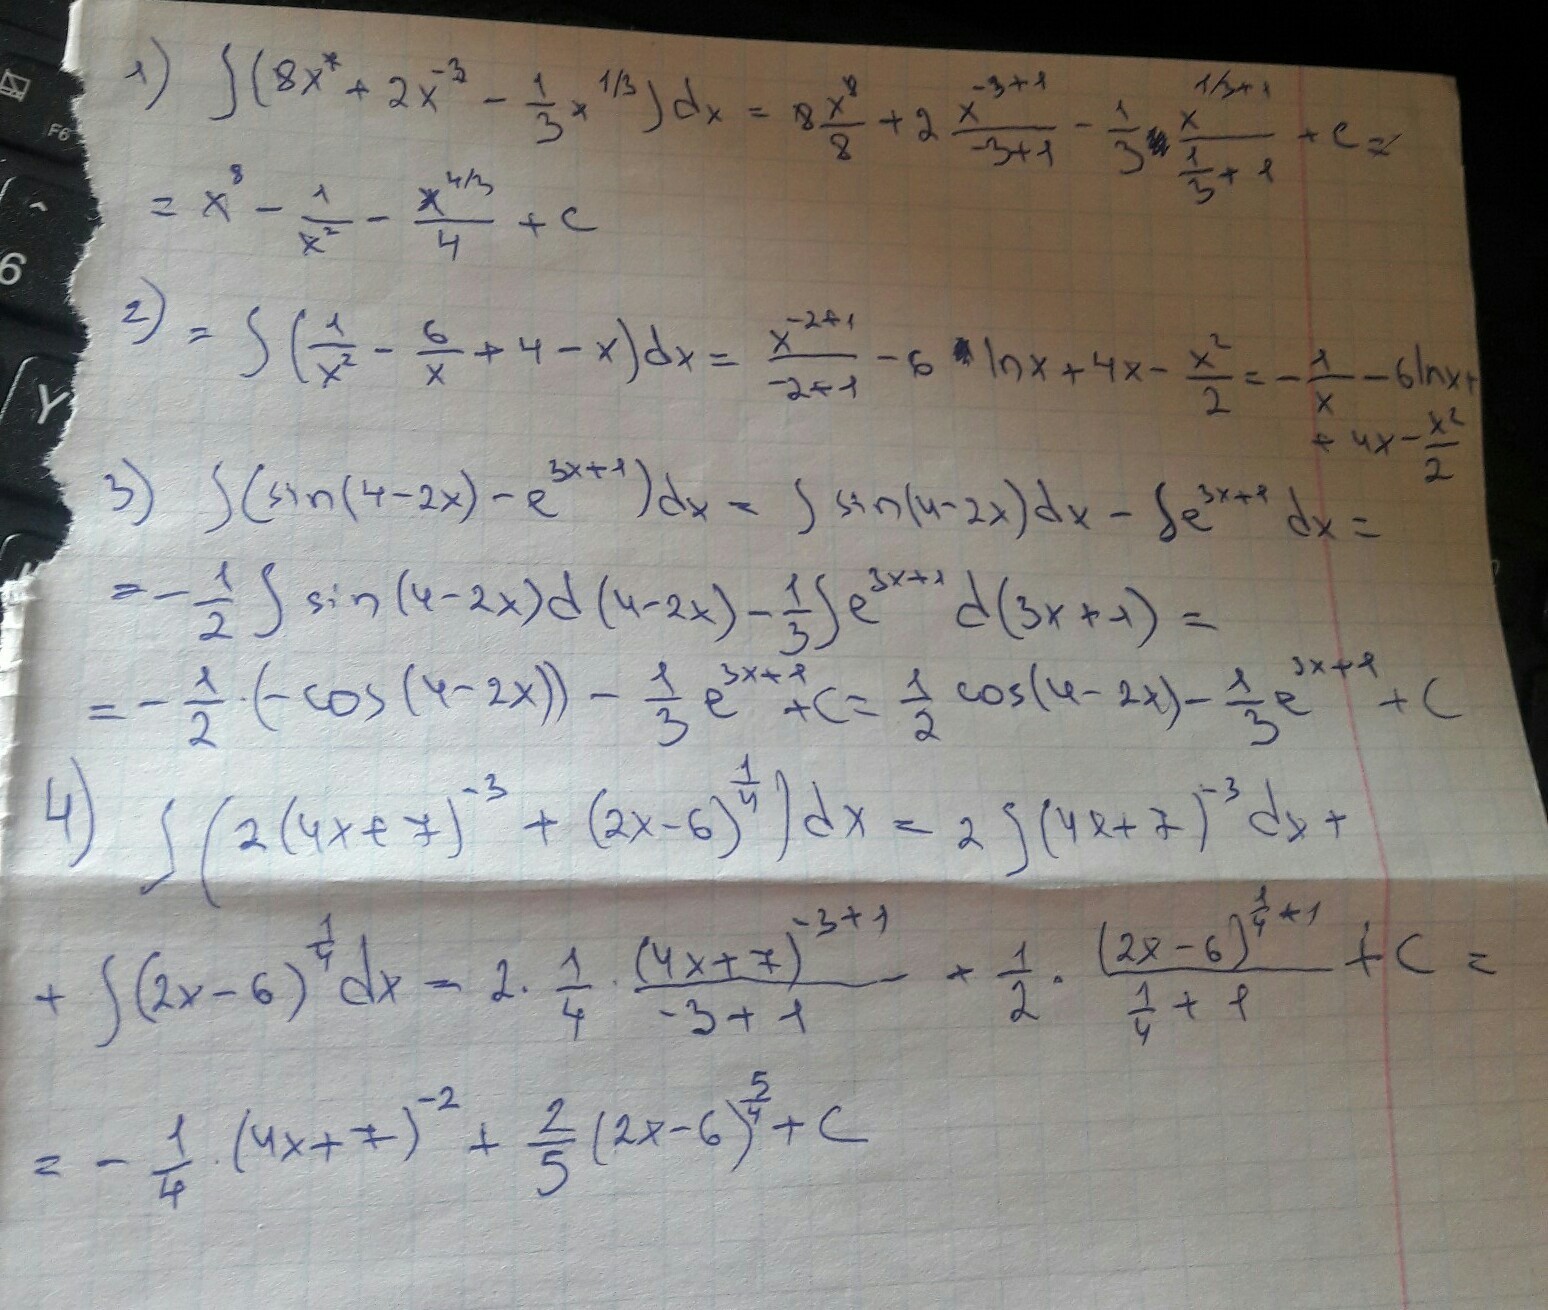 1) ∫(8x⁷ + 2x⁻³ - 1/3 x^(1/3))dx = 8 x⁸/8 + 2 x^(-3+1)/(-3+1) - 1/3 x^(1/3+1)/(1/3+1) + c =
= x⁸ - 1/x² - x^(4/3)/4 + c
2) = ∫(1/x² - 6/x + 4 - x)dx = x^(-2+1)/(-2+1) - 6 lnx + 4x - x²/2 = -1/x - 6lnx +
+ 4x - x²/2
3) ∫(sin(4-2x) - e^(3x+1))dx = ∫ sin(4-2x)dx - ∫e^(3x+1) dx =
= -1/2 ∫ sin(4-2x)d(4-2x) - 1/3 ∫e^(3x+1) d(3x+1) =
= -1/2 · (-cos(4-2x)) - 1/3 e^(3x+1) + C = 1/2 cos(4-2x) - 1/3 e^(3x+1) + C
4) ∫(2(4x+7)⁻³ + (2x-6)^(1/4))dx = 2∫(4x+7)⁻³dx +
+ ∫(2x-6)^(1/4)dx = 2 · 1/4 · (4x+7)^(-3+1)/(-3+1) + 1/2 · (2x-6)^(1/4+1)/(1/4+1) + C =
= -1/4 · (4x+7)⁻² + 2/5 (2x-6)^(5/4) + C
F6
6
Y